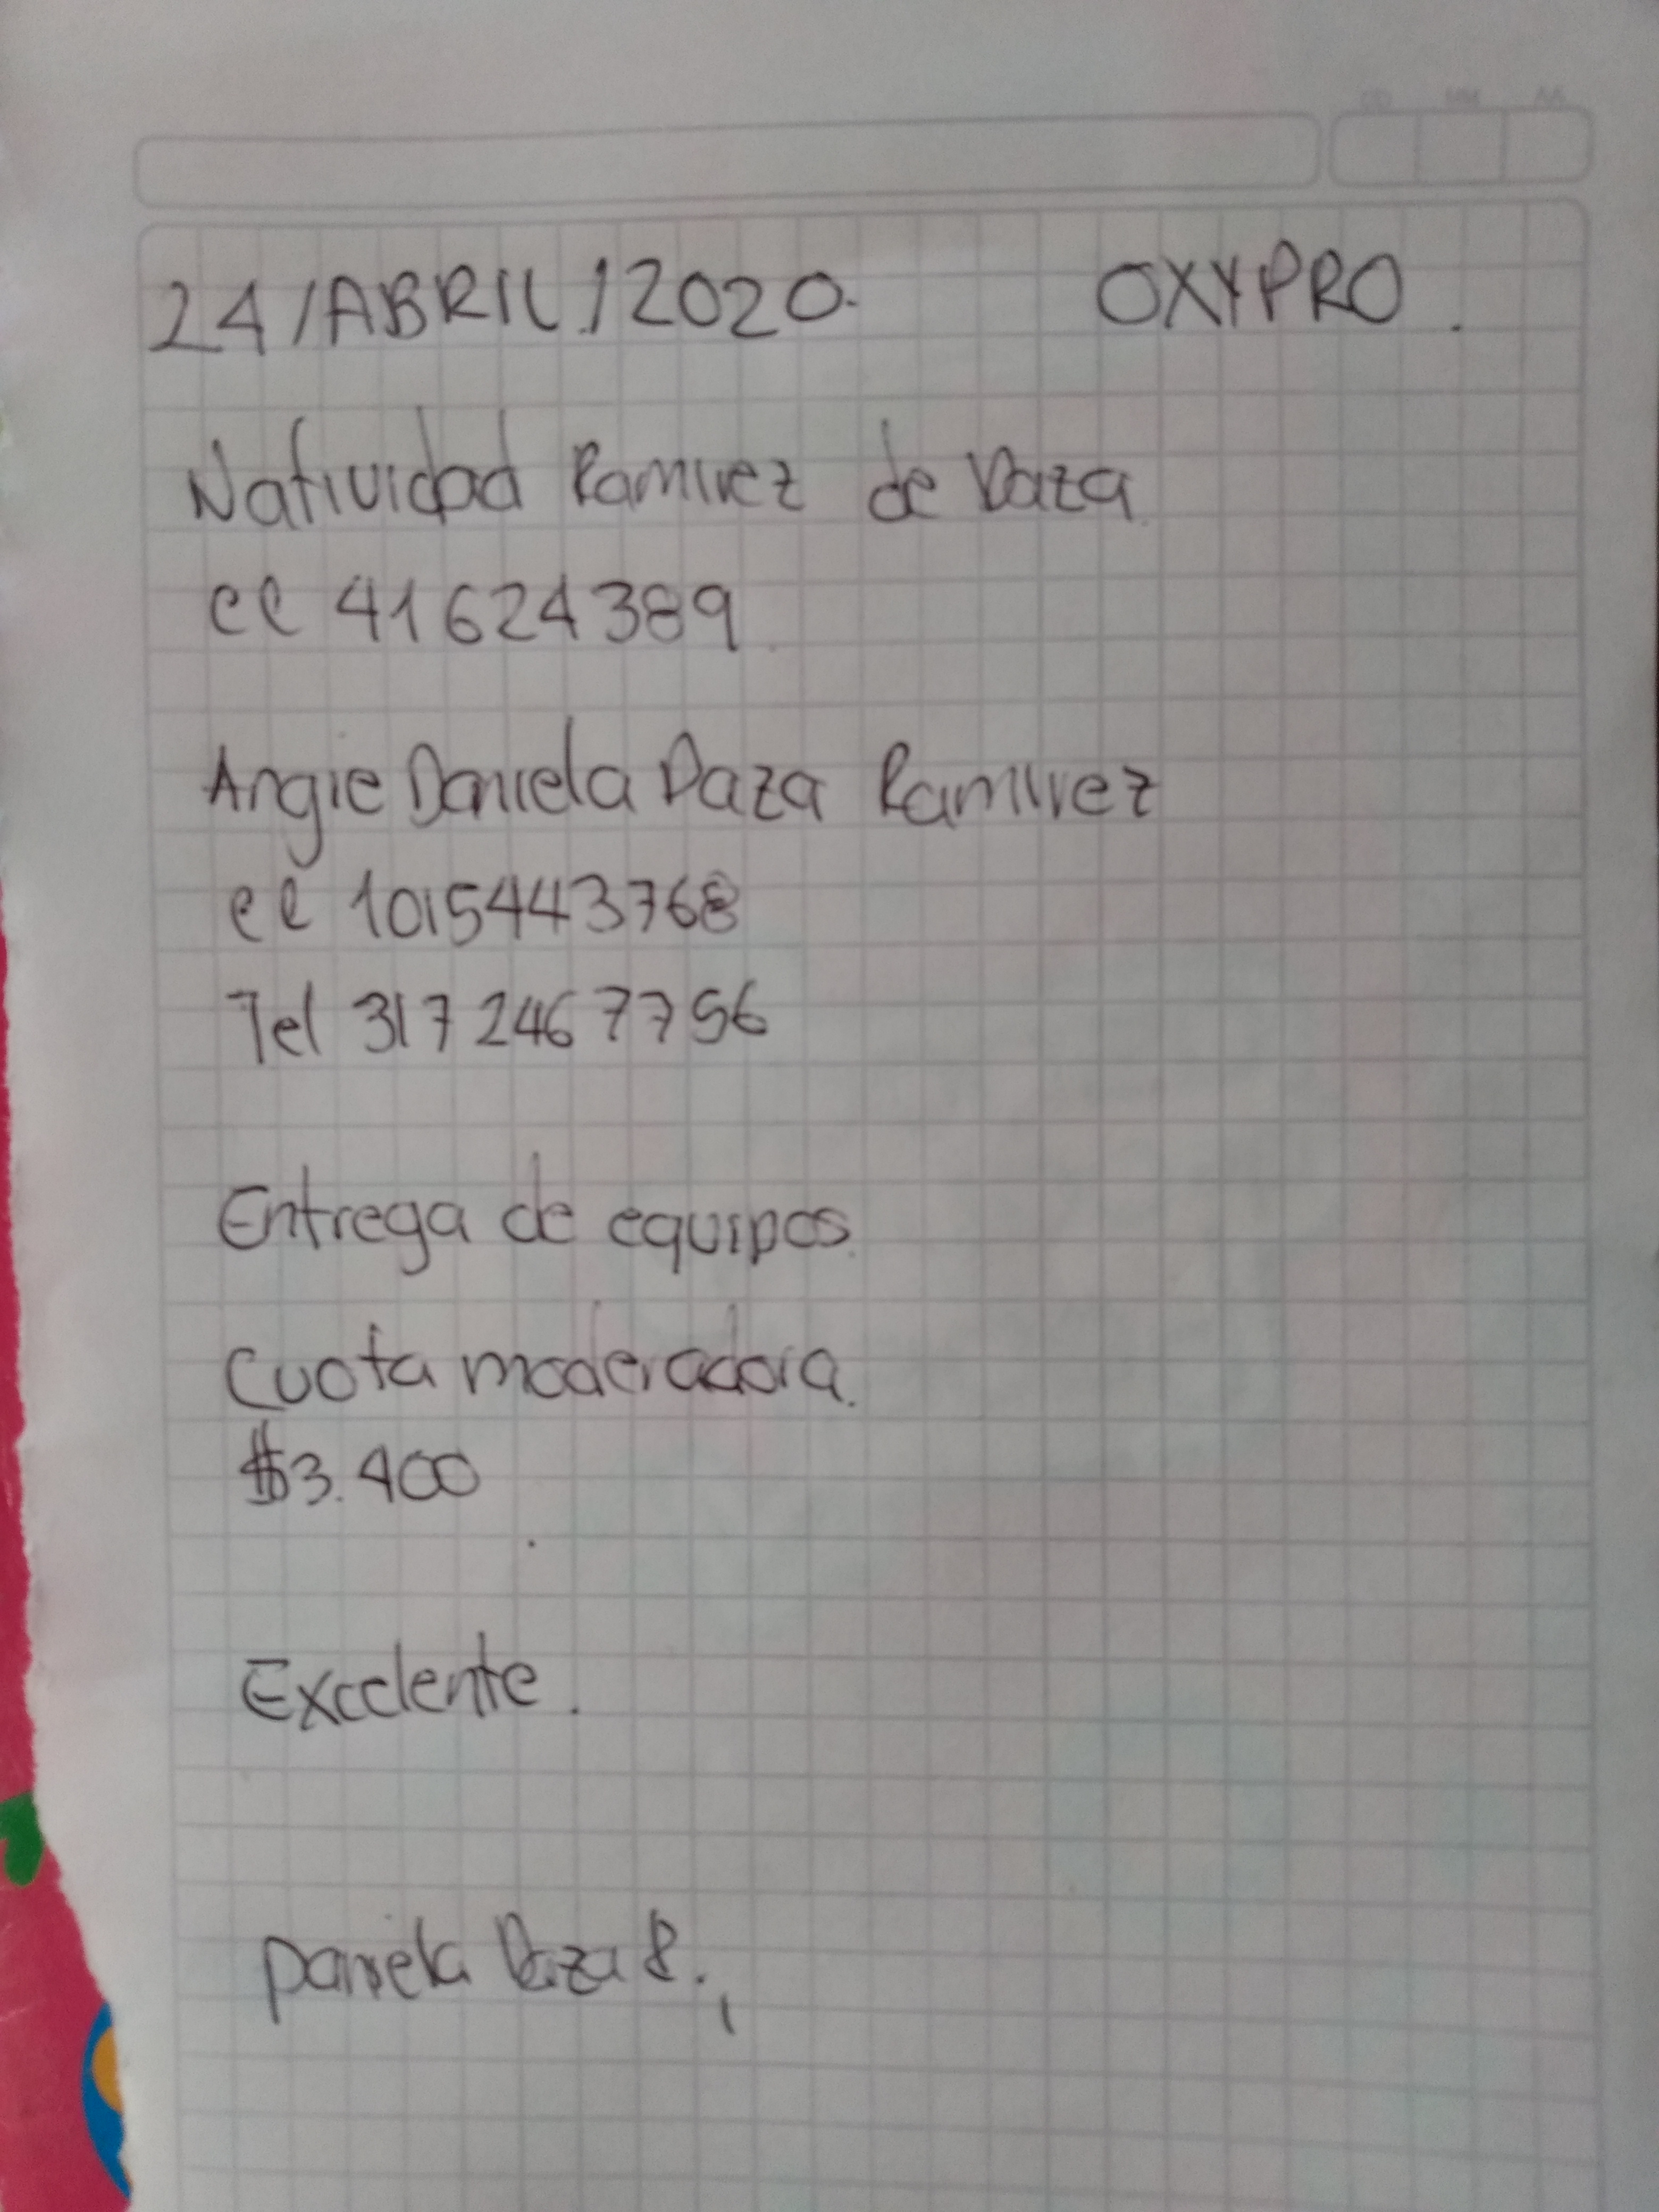 24/ABRIL/2020. OXYPRO.
Natividad Ramirez de Daza
cc 41624389
Angie Daniela Daza Ramirez
cc 1015443768
Tel 317 246 7756
Entrega de equipos.
Cuota moderadora.
$3.400
Excelente.
Daniela Daza R.